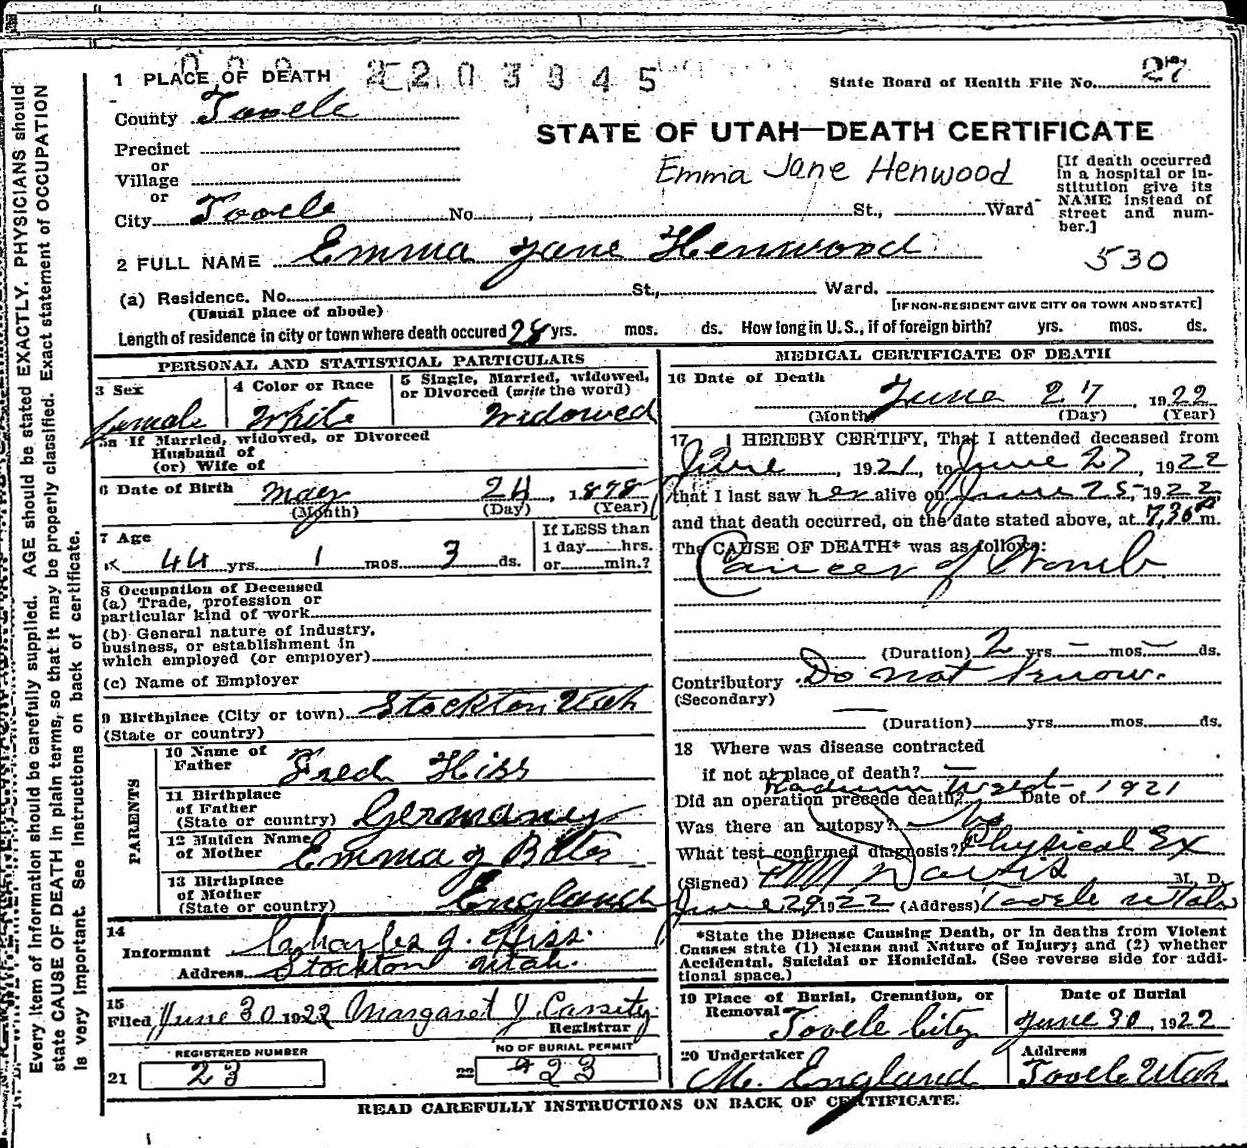 2203945
1 PLACE OF DEATH
State Board of Health File No. 27
County Tooele
STATE OF UTAH—DEATH CERTIFICATE
Precinct
or
Village
or
Emma Jane Henwood
[If death occurred in a hospital or institution give its NAME instead of street and number.]
City Tooele No. , St., Ward
2 FULL NAME Emma Jane Henwood
530
(a) Residence. No. St., Ward.
(Usual place of abode) [IF NON-RESIDENT GIVE CITY OR TOWN AND STATE]
Length of residence in city or town where death occured 28 yrs. mos. ds. How long in U. S., if of foreign birth? yrs. mos. ds.
PERSONAL AND STATISTICAL PARTICULARS
3 Sex
female
4 Color or Race
White
5 Single, Married, widowed, or Divorced (write the word)
Widowed
5a If Married, widowed, or Divorced
Husband of
(or) Wife of
6 Date of Birth May 24, 1878
(Month) (Day) (Year)
7 Age
44 yrs. 1 mos 3 ds.
If LESS than
1 day hrs.
or min.?
8 Occupation of Deceased
(a) Trade, profession or
particular kind of work
(b) General nature of industry,
business, or establishment in
which employed (or employer)
(c) Name of Employer
9 Birthplace (City or town) Stockton Utah
(State or country)
PARENTS
10 Name of Father Fred Hiss
11 Birthplace of Father
(State or country) Germaney
12 Maiden Name of Mother Emma J
13 Birthplace of Mother
(State or country) England
14
Informant Charles J. Hiss.
Address Stockton Utah.
15
Filed June 30 1922 Margaret Y. Cassity
Registrar
REGISTERED NUMBER
NO OF BURIAL PERMIT
21 23
22 423
MEDICAL CERTIFICATE OF DEATH
16 Date of Death
June 27, 1922
(Month) (Day) (Year)
17 I HEREBY CERTIFY, That I attended deceased from
June , 1921, to June 27, 1922
that I last saw her alive on June 25, 1922
and that death occurred, on the date stated above, at 7,30 m.
The CAUSE OF DEATH* was as follows:
Cancer of Womb
(Duration) 2 yrs — mos — ds.
Contributory Do not know.
(Secondary)
(Duration) yrs mos ds.
18 Where was disease contracted
if not at place of death? —
Radium used - 1921
Did an operation precede death? Date of
Was there an autopsy? No
What test confirmed diagnosis? Physical Ex
(Signed) Davis M. D.
June 29, 1922 (Address) Tooele Utah
*State the Disease Causing Death, or in deaths from Violent
Causes state (1) Means and Nature of Injury; and (2) whether
Accidental, Suicidal or Homicidal. (See reverse side for addi-
tional space.)
19 Place of Burial, Cremation, or
Removal
Tooele City
Date of Burial
June 30, 1922
20 Undertaker
M. England
Address
Tooele Utah
READ CAREFULLY INSTRUCTIONS ON BACK OF CERTIFICATE.
Every item of information should be carefully supplied. AGE should be stated EXACTLY. PHYSICIANS should
state CAUSE OF DEATH in plain terms, so that it may be properly classified. Exact statement of OCCUPATION
is very important. See instructions on back of certificate.